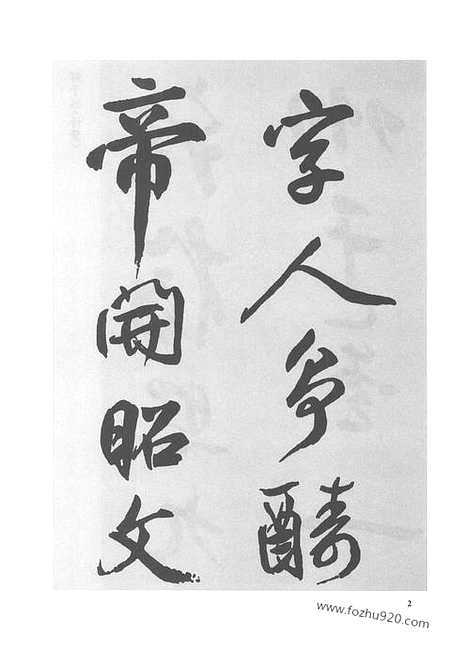 字人爭酬
帝開昭文
2
www.fozhu920.com